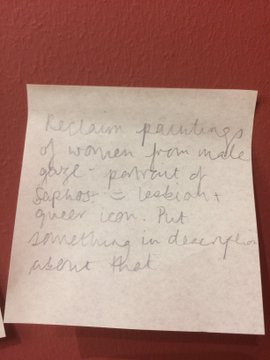 Reclaim paintings
of women from male
gaze - portrait of
Saphos = lesbian +
queer icon. Put
something in description
about that